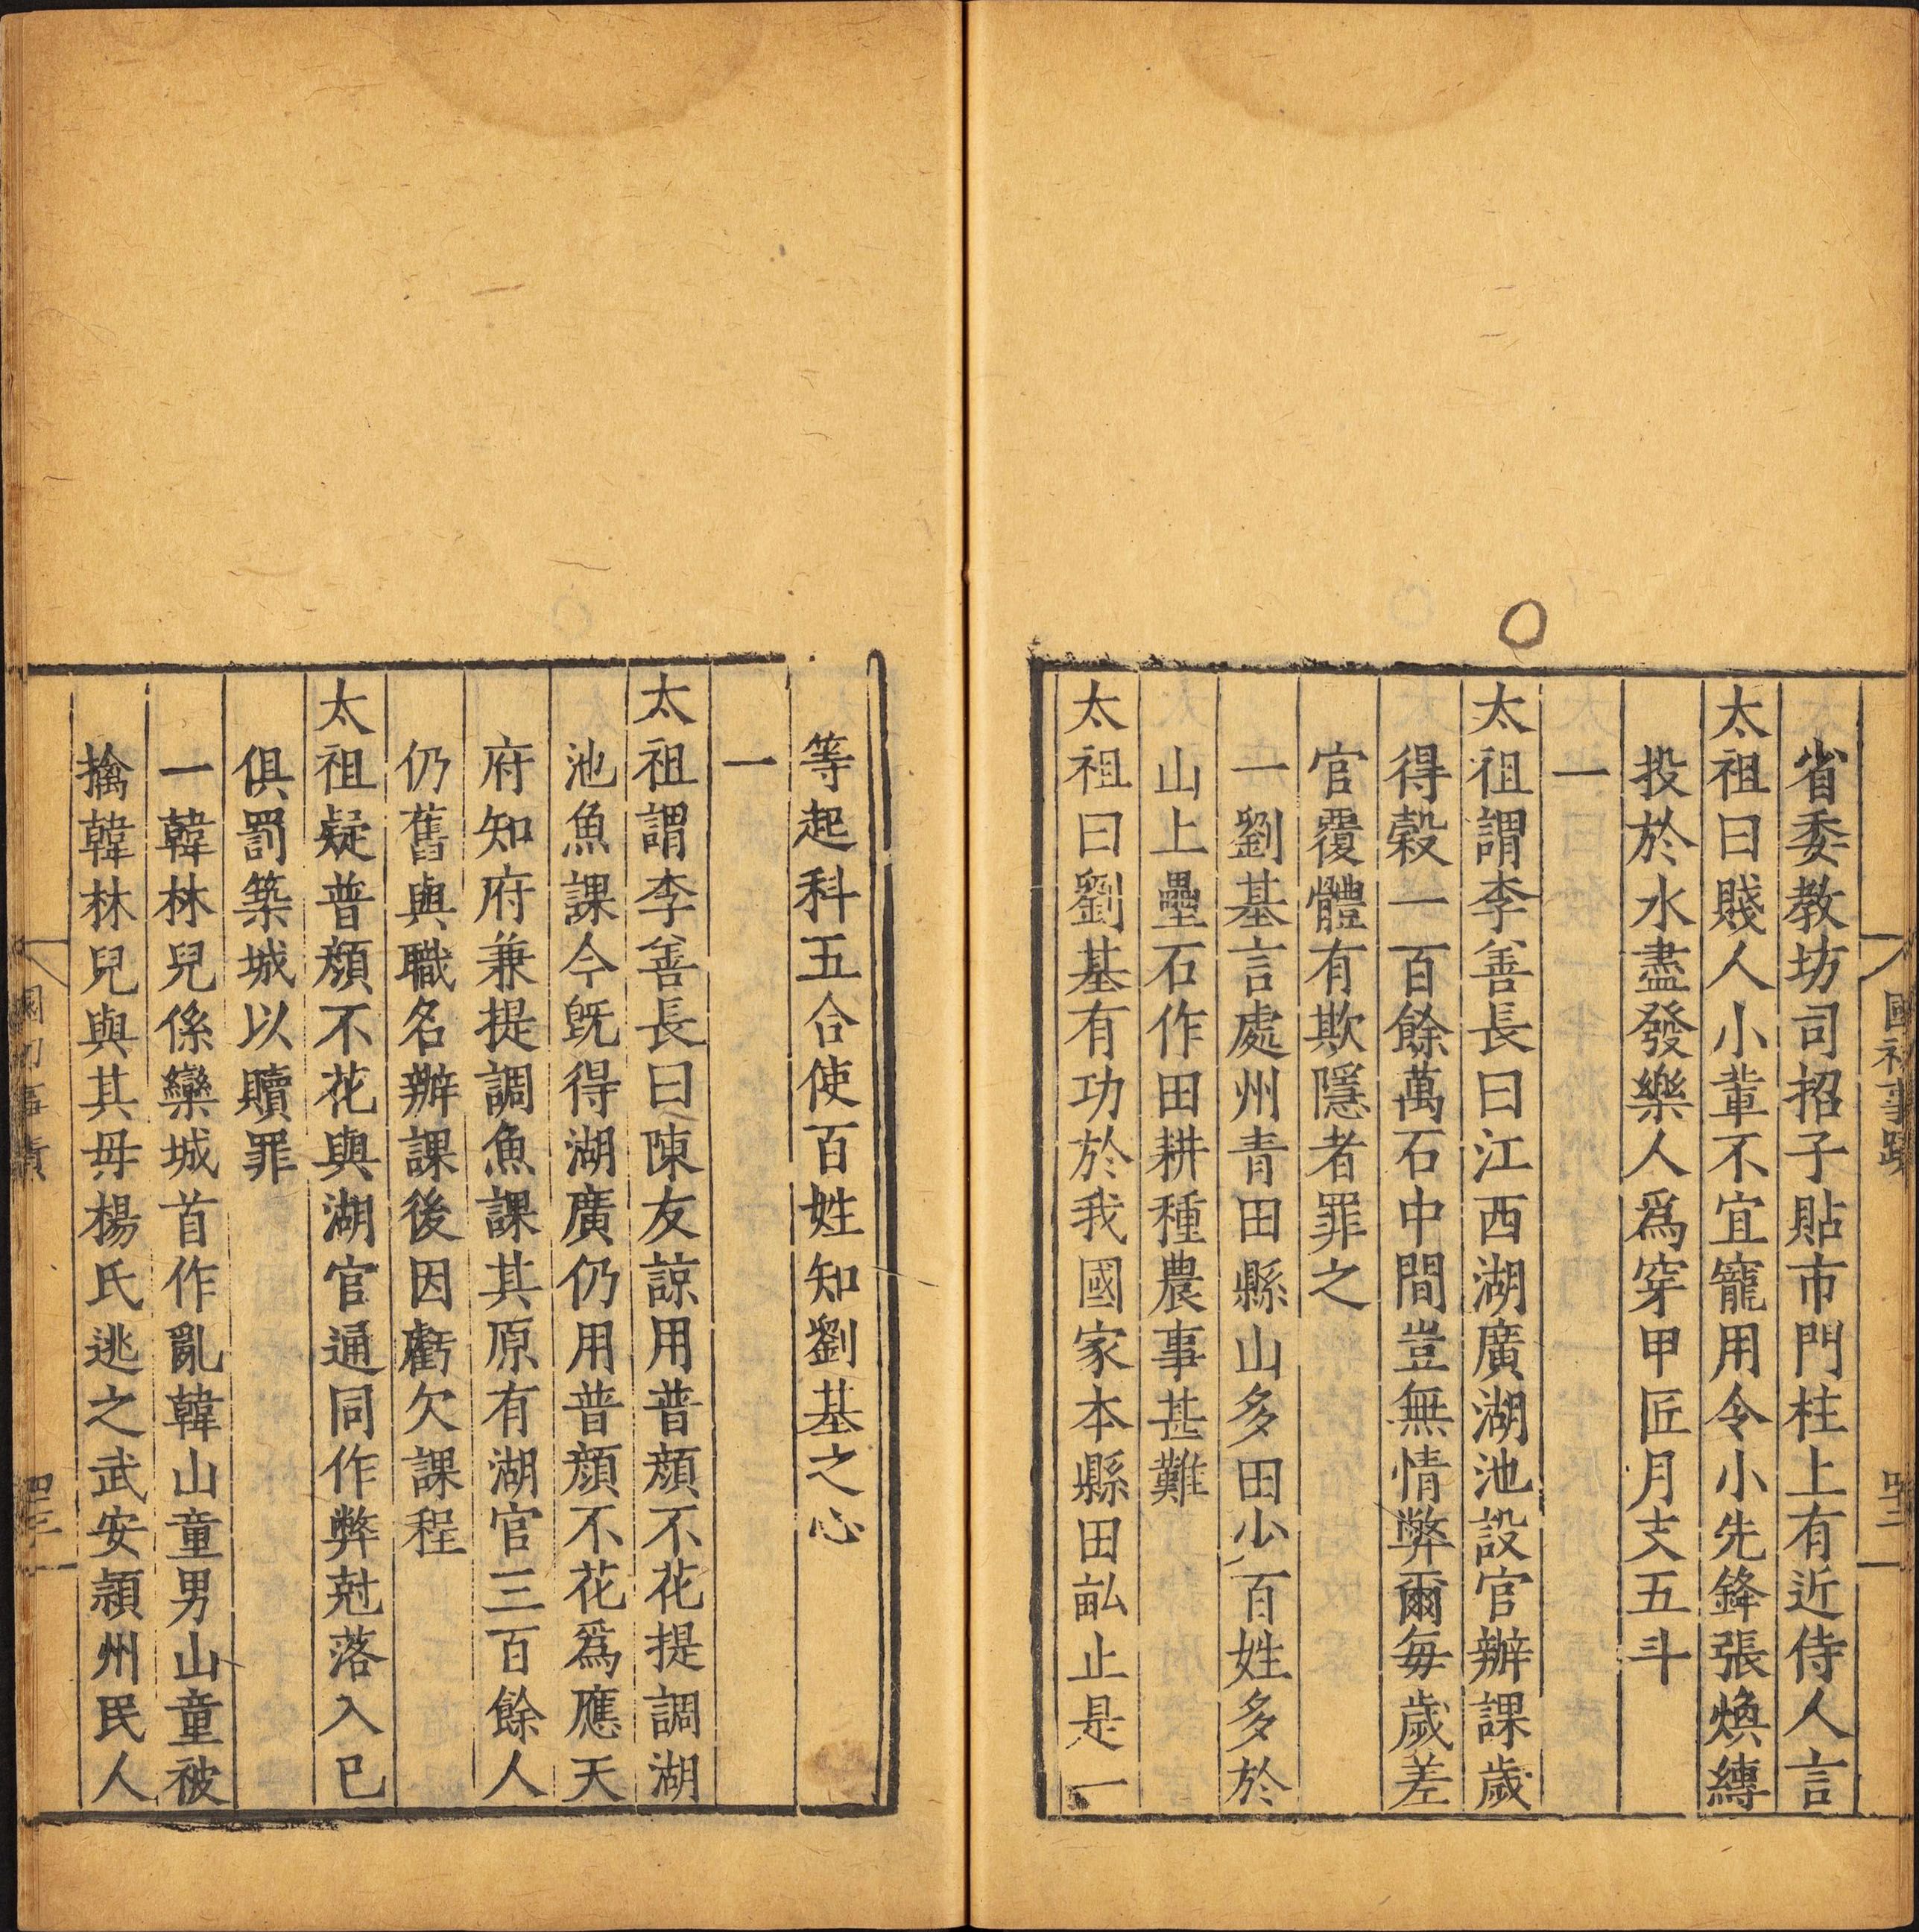 國初事蹟
四二
省委教坊司招子貼市門柱上有近侍人言
太祖曰賤人小輩不宜寵用令小先鋒張煥縳
投於水盡發樂人爲穿甲匠月支五斗
一
太祖謂李善長曰江西湖廣湖池設官辦課歲
得穀一百餘萬石中間豈無情弊爾每歲差
官覆體有欺隱者罪之
一劉基言處州青田縣山多田少百姓多於
山上壘石作田耕種農事甚難
太祖曰劉基有功於我國家本縣田畆止是一
等起科五合使百姓知劉基之心
一
太祖謂李善長曰陳友諒用普顔不花提調湖
池魚課今旣得湖廣仍用普顔不花爲應天
府知府兼提調魚課其原有湖官三百餘人
仍舊與職名辦課後因虧欠課程
太祖疑普顔不花與湖官通同作弊尅落入已
俱罰築城以贖罪
一韓林兒係欒城首作亂韓山童男山童被
擒韓林兒與其毋楊氏逃之武安頴州民人
國初事蹟
四三